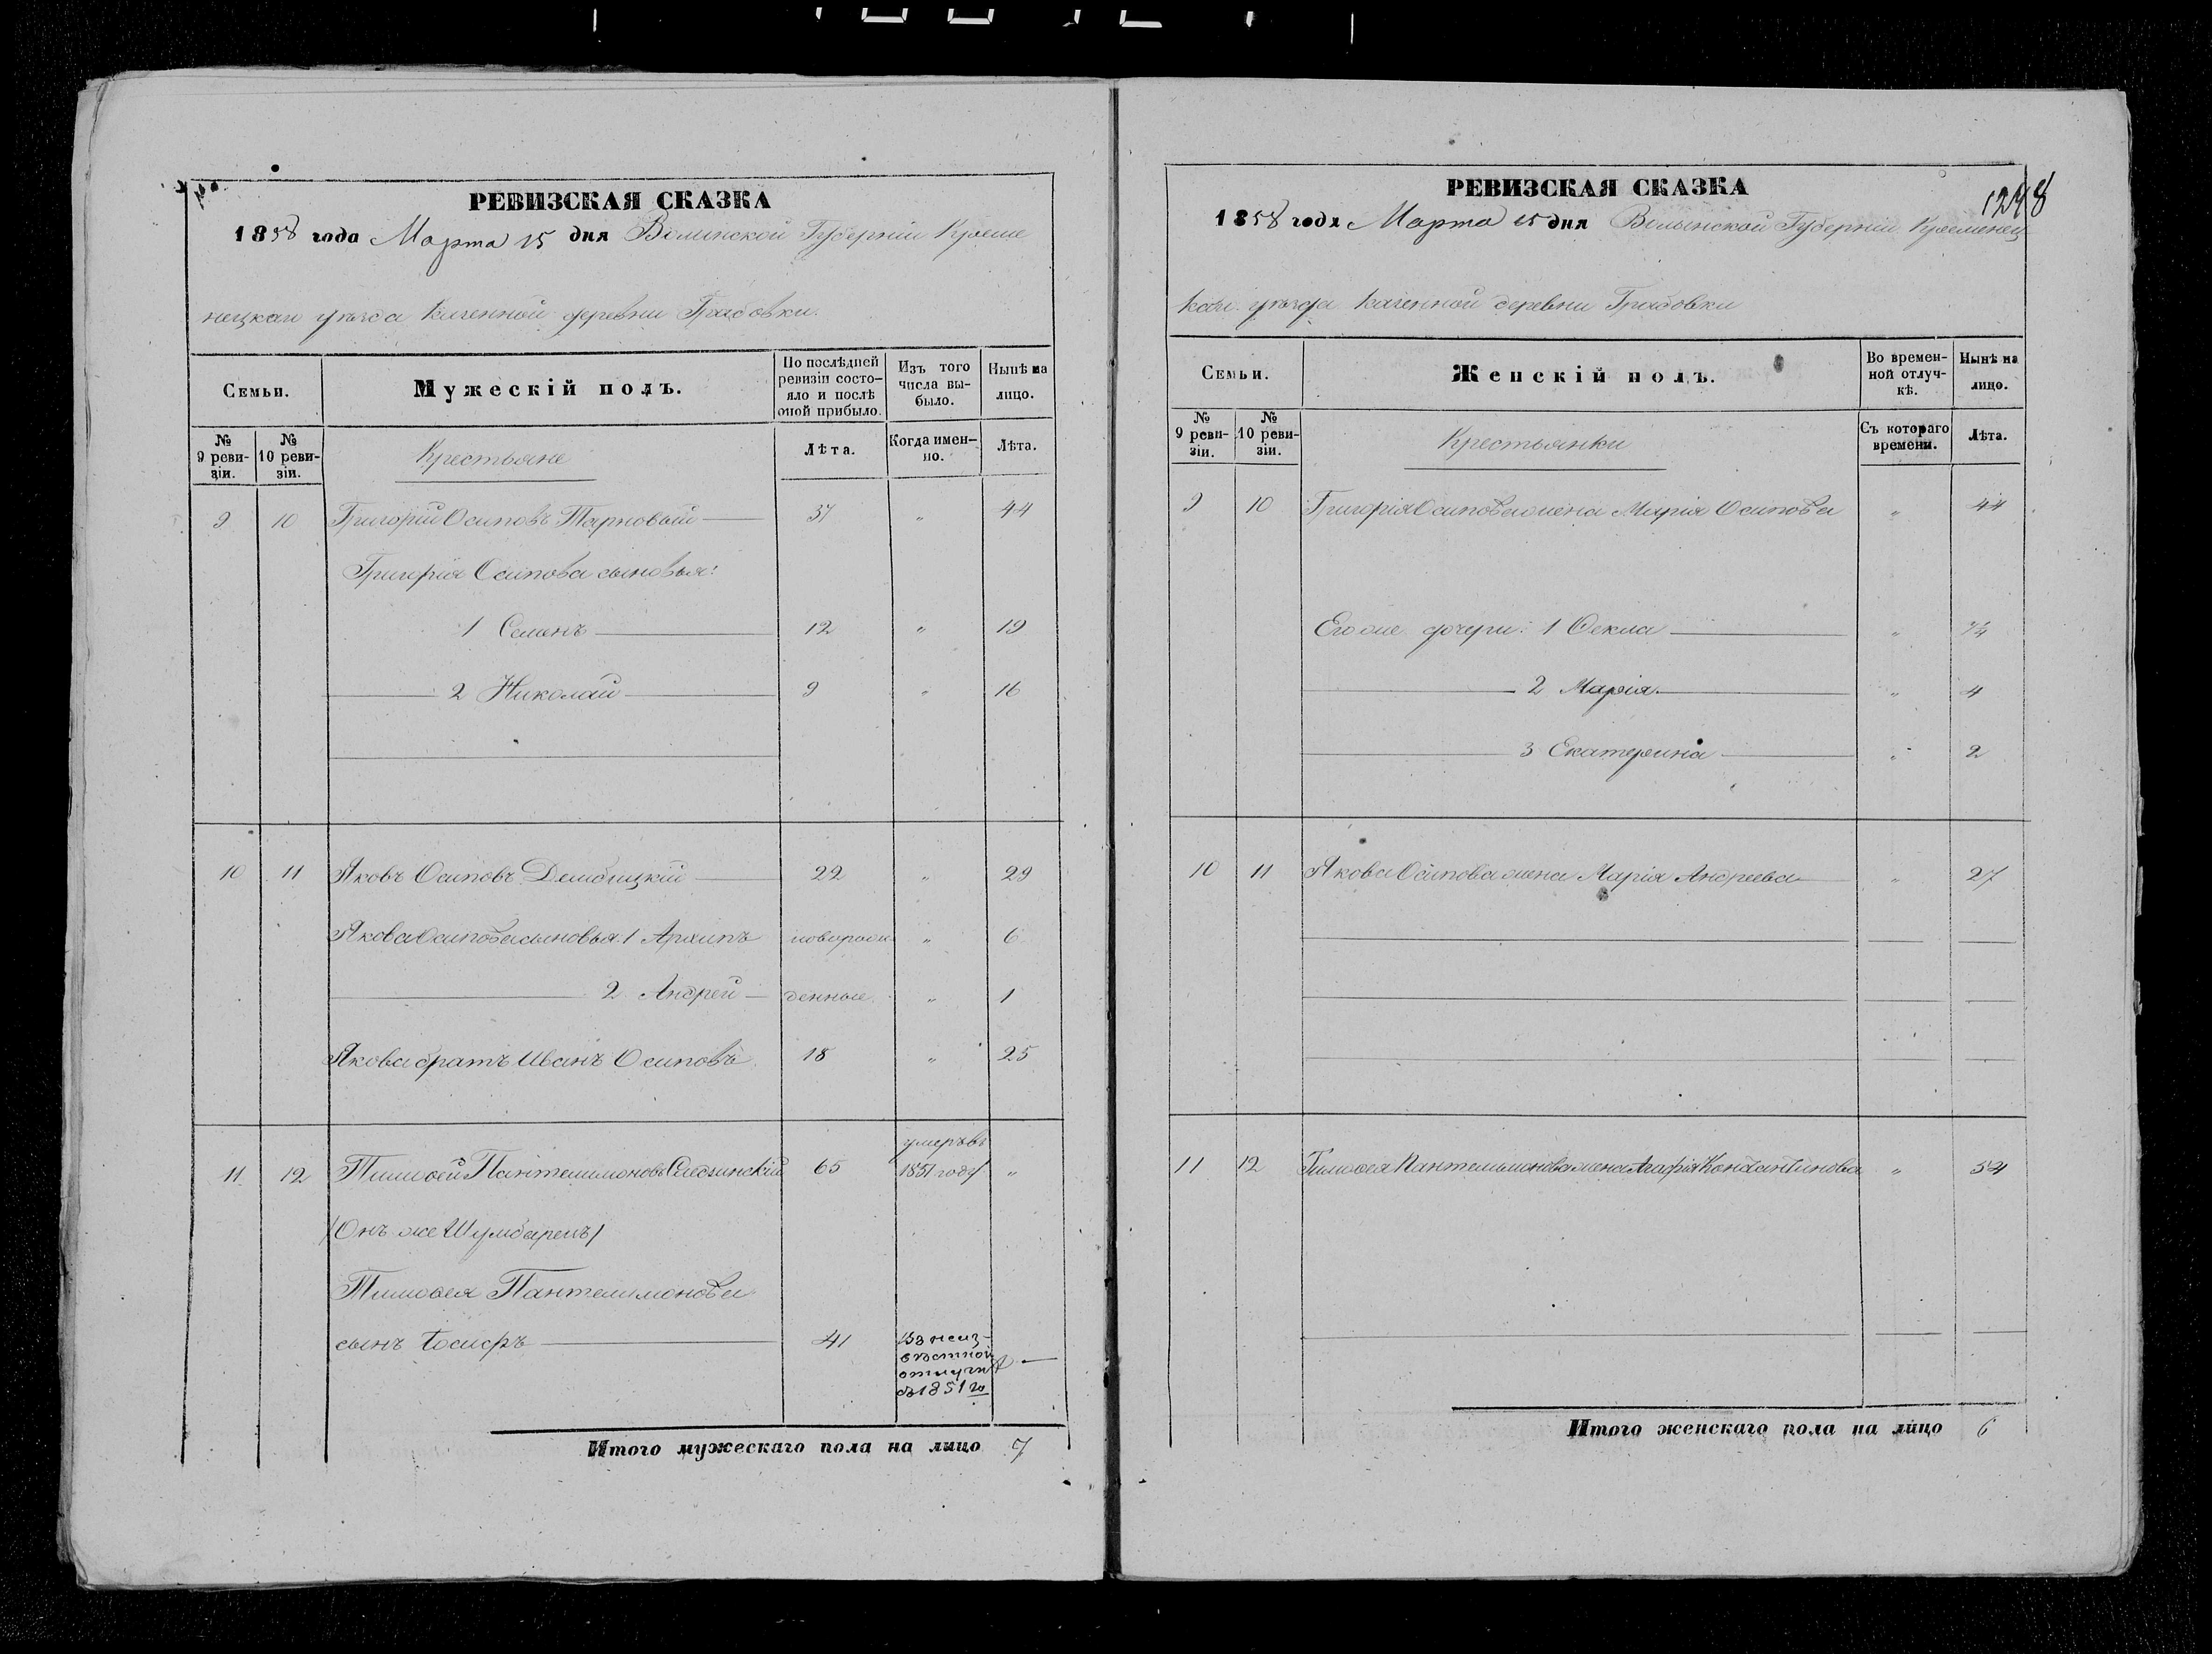 РЕВИЗСКАЯ СКАЗКА
1858 года Марта 15 дня Волынской Губернии Креме
нецкаго уѣзда Казенной деревни Грабовки.
Семьи.
Мужескій полъ.
По послѣдней ревизіи состо-
яло и послѣ оной прибыло.
Изъ того числа вы-
было.
Нынѣ на лицо.
№ 9 реви-
зіи.
№ 10 реви-
зіи.
Крестьяне
Лѣта.
Когда имен-
но.
Лѣта.
9 10 Григорій Осиповъ Терновый 37 " 44
Григорія Осипова сыновья:
1 Семенъ 12 " 19
2 Николай 9 " 16
10 11 Яковъ Осиповъ Дембицкій 22 " 29
Якова Осипова сыновья: 1 Архипъ новорож " 6
2 Андрей денные " 1
Якова братъ Иванъ Осиповъ 18 " 25
умеръ въ
11 12 Тимоѳей Пантелимоновъ 65 1851 году "
(Онъ же Шумбарецъ)
Тимоѳея Пантелимонова
сынъ Іосифъ 41 Въ неиз-
вѣстной
отлучкѣ
съ 1851 го
Итого мужескаго пола на лицо 7
1248
РЕВИЗСКАЯ СКАЗКА
1858 года Марта 15 дня Волынской Губерніи Кременец
каго уѣзда Казенной деревни Грабовки
Семьи.
Женскій полъ.
Во времен-
ной отлуч-
кѣ.
Нынѣ на
лицо.
№ 9 реви-
зіи.
№ 10 реви-
зіи.
Крестьянки
Съ котораго
времени.
Лѣта.
9 10 Григорія Осипова жена Марія Осипова " 44
Его же дочери: 1 Ѳекла "
2 Марія " 4
3 Екатерина " 2
10 11 Якова Осипова жена Марія Андреева " 27
11 12 Тимоѳея Пантелимонова жена Агафія Константинова " 54
Итого женскаго пола на лицо 6